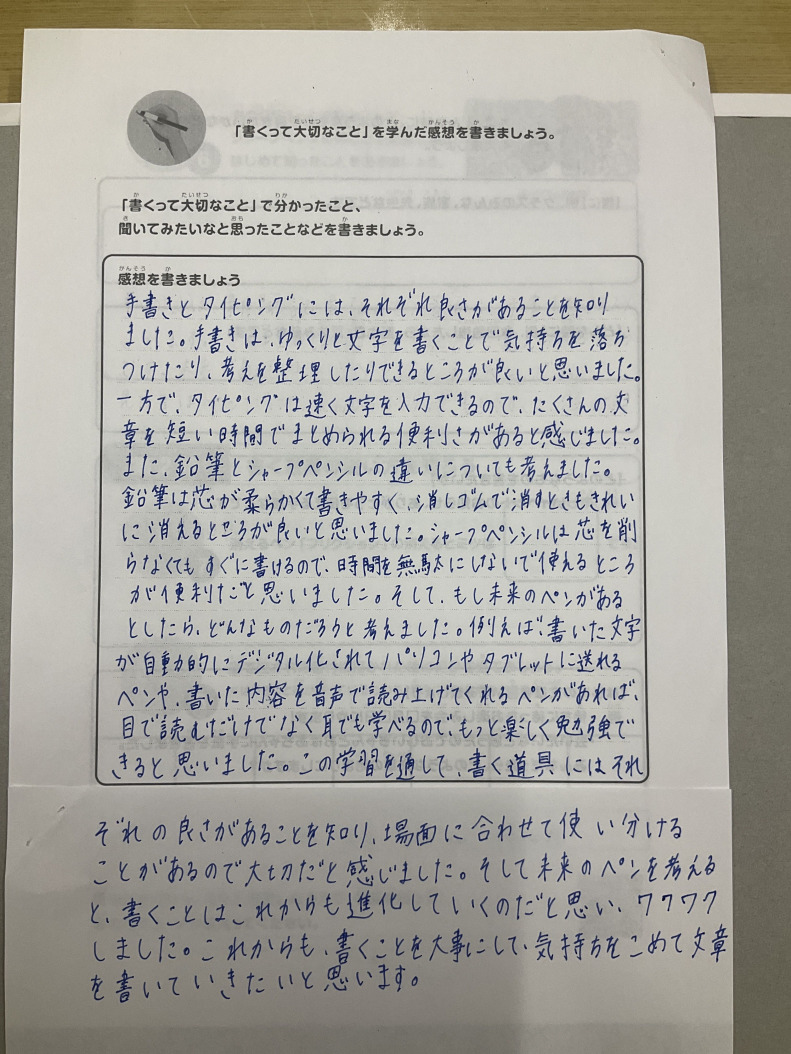 「書くって大切なこと」を学んだ感想を書きましょう。
「書くって大切なこと」で分かったこと、
聞いてみたいなと思ったことなどを書きましょう。
感想を書きましょう
手書きとタイピングには、それぞれ良さがあることを知り
ました。手書きは、ゆっくりと文字を書くことで気持ちを落ち
つけたり、考えを整理したりできるところが良いと思いました。
一方で、タイピングは速く文字を入力できるので、たくさんの文
章を短い時間でまとめられる便利さがあると感じました。
また、鉛筆とシャープペンシルの違いについても考えました。
鉛筆は芯が柔らかくて書きやすく、消しゴムで消すときもきれい
に消えるところが良いと思いました。シャープペンシルは芯を削
らなくてもすぐに書けるので、時間を無駄にしないで使えるところ
が便利だと思いました。そして、もし未来のペンがある
としたら、どんなものだろうと考えました。例えば、書いた文字
が自動的にデジタル化されてパソコンやタブレットに送れる
ペンや、書いた内容を音声で読み上げてくれるペンがあれば、
目で読むだけでなく耳でも学べるので、もっと楽しく勉強で
きると思いました。この学習を通して、書く道具にはそれ
ぞれの良さがあることを知り、場面に合わせて使い分ける
ことがあるので大切だと感じました。そして未来のペンを考える
と、書くことはこれからも進化していくのだと思い、ワクワク
しました。これからも、書くことを大事にして、気持ちをこめて文章
を書いていきたいと思います。